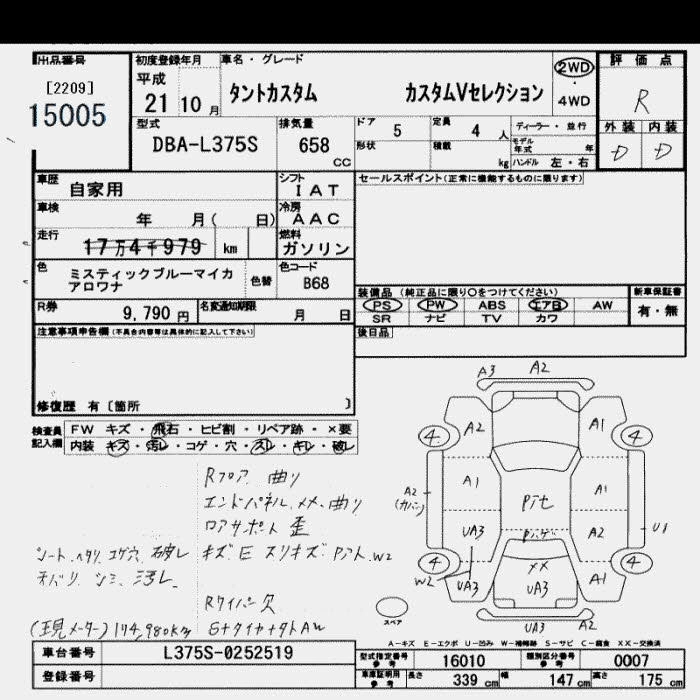 出品番号 初度登録年月 車名・グレード 評価点
[2209] 平成 2WD
15005 21 10月 タントカスタム カスタムVセレクション ・ R
4WD
型式 排気量 ドア 5 定員 4人 ディーラー・並行 外装 内装
DBA-L375S 658 CC 形状 積載 kg モデル年式 年 D D
ハンドル 左・右
車歴 自家用 シフト IAT セールスポイント(正常に機能するものに限ります)
車検 年 月( 日) 冷房 AAC
走行 17万4千979 km 燃料 ガソリン
色 ミスティックブルーマイカ 色替 色コード
アロワナ B68
装備品 (純正品に限り○をつけてください) 新車保証書
R券 9,790円 名変通知期限 月 日 PS PW ABS エアB AW 有・無
SR ナビ TV カワ
注意事項申告欄(不具合内容等は具体的に記入して下さい) 後日品
修復歴 有〔箇所 〕
検査員 FW キズ・飛石・ヒビ割・リペア跡・×要
記入欄 内装 キズ・汚レ・コゲ・穴・スレ・キレ・破レ
A3 A2
4 A2 A1 4
A1 A1
A2 (カバー) Pアセ
UA3 A2 U1
4 W2 UA3 XX UA3 A1 4
スペア UA3 A2
Rフロア 曲り
エンドパネル メメ 曲り
ロアサポート 歪
シート ヘタリ コゲ穴 破レ キズ E スリキズ Pアト W2
ネバリ シミ 汚レ
Rワイパー欠
(現メーター) 174,980km
A-キズ E-エクボ U-凹み W-補修跡 S-サビ C-腐食 XX-交換済
車台番号 L375S-0252519 型式指定番号 参考 16010 類別区分番号 参考 0007
登録番号 車庫証明用 参考 長さ 339cm 幅 147cm 高さ 175cm